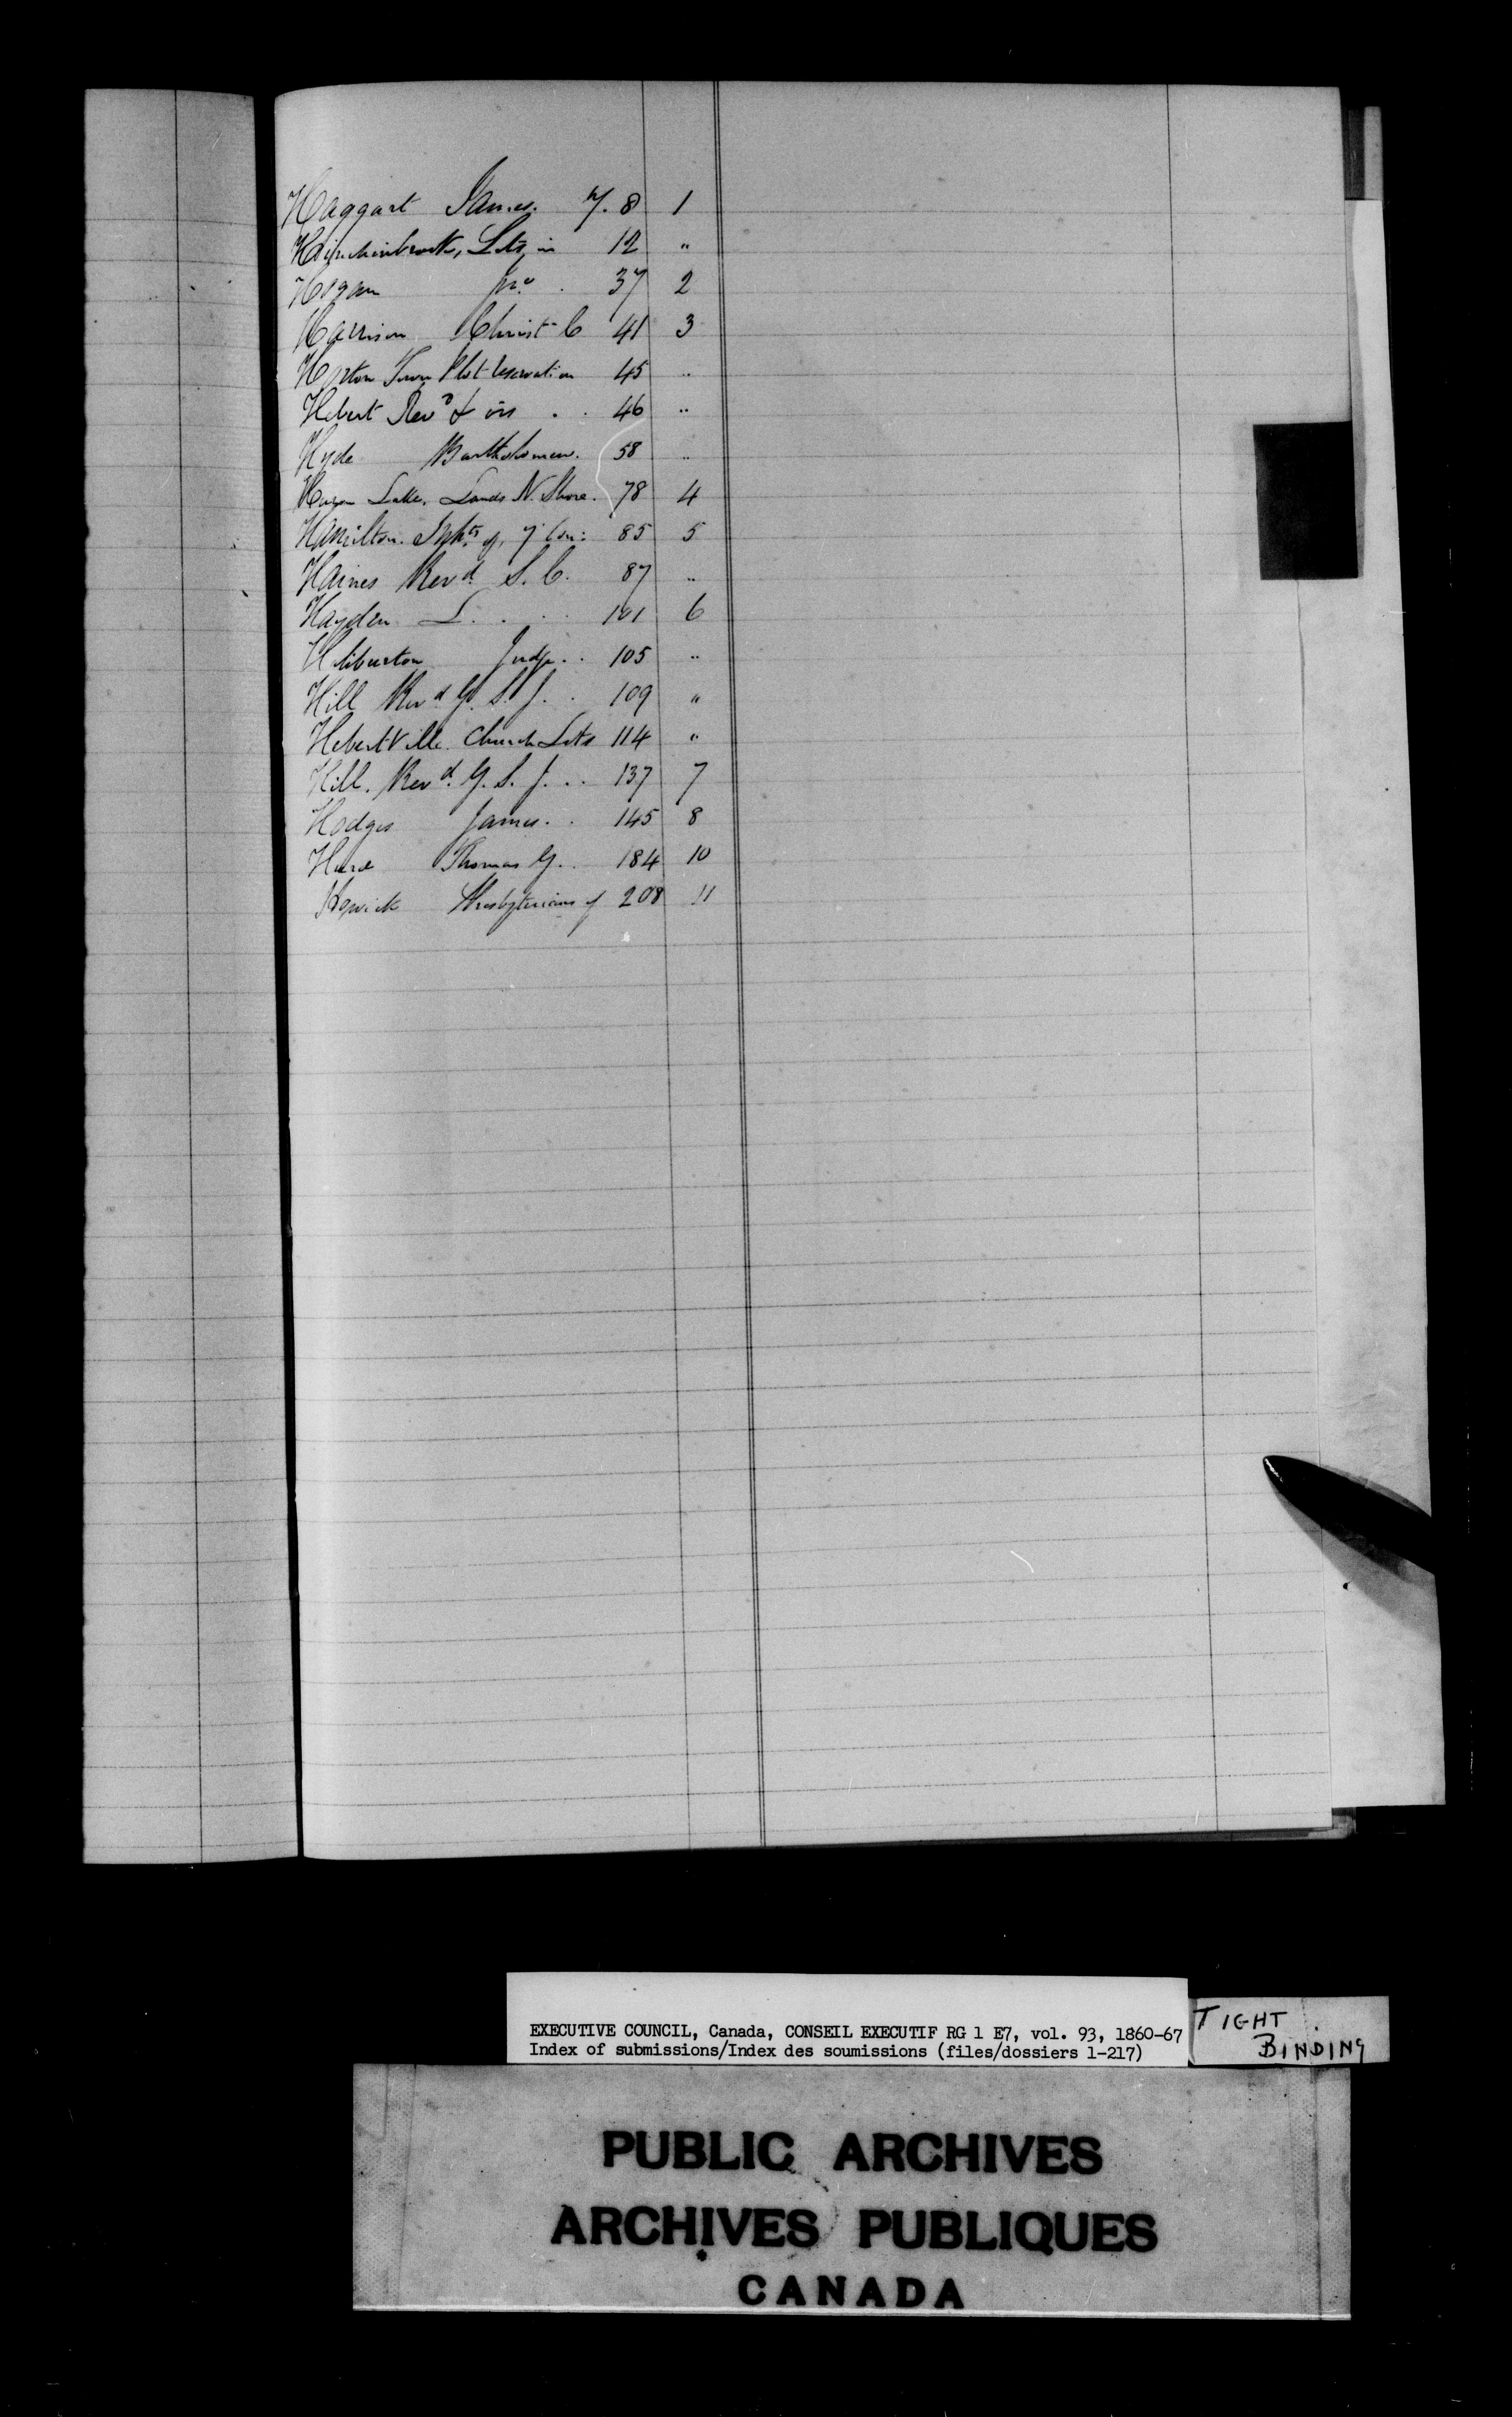 Haggart James. 7. 8 1
Hinchinbrook, Lots in 12 "
Hogan Jno. 37 2
Harrison Christ. C 41 3
Horton Town Plot reservation 45 "
Hebert Revd & ors . . 46 "
Hyde Bartholomew. 58 "
Huron Lake, Lands N. Shore. 78 4
Hamilton. of, 85 5
Haines Revd. S. C. 87 "
Hayden L. . . . 101 6
Judge . . 105 "
Hill Revd. G. S. J. . 109 "
Hebertville Church Lots 114 "
Hill. Revd. G. S. J. . . 137 7
Hodges James. . 145 8
Thomas G. . 184 10
Howick Presbyterians of 208 11
EXECUTIVE COUNCIL, Canada, CONSEIL EXECUTIF RG 1 E7, vol. 93, 1860-67
Index of submissions/Index des soumissions (files/dossiers 1-217)
TIGHT
BINDING
PUBLIC ARCHIVES
ARCHIVES PUBLIQUES
CANADA